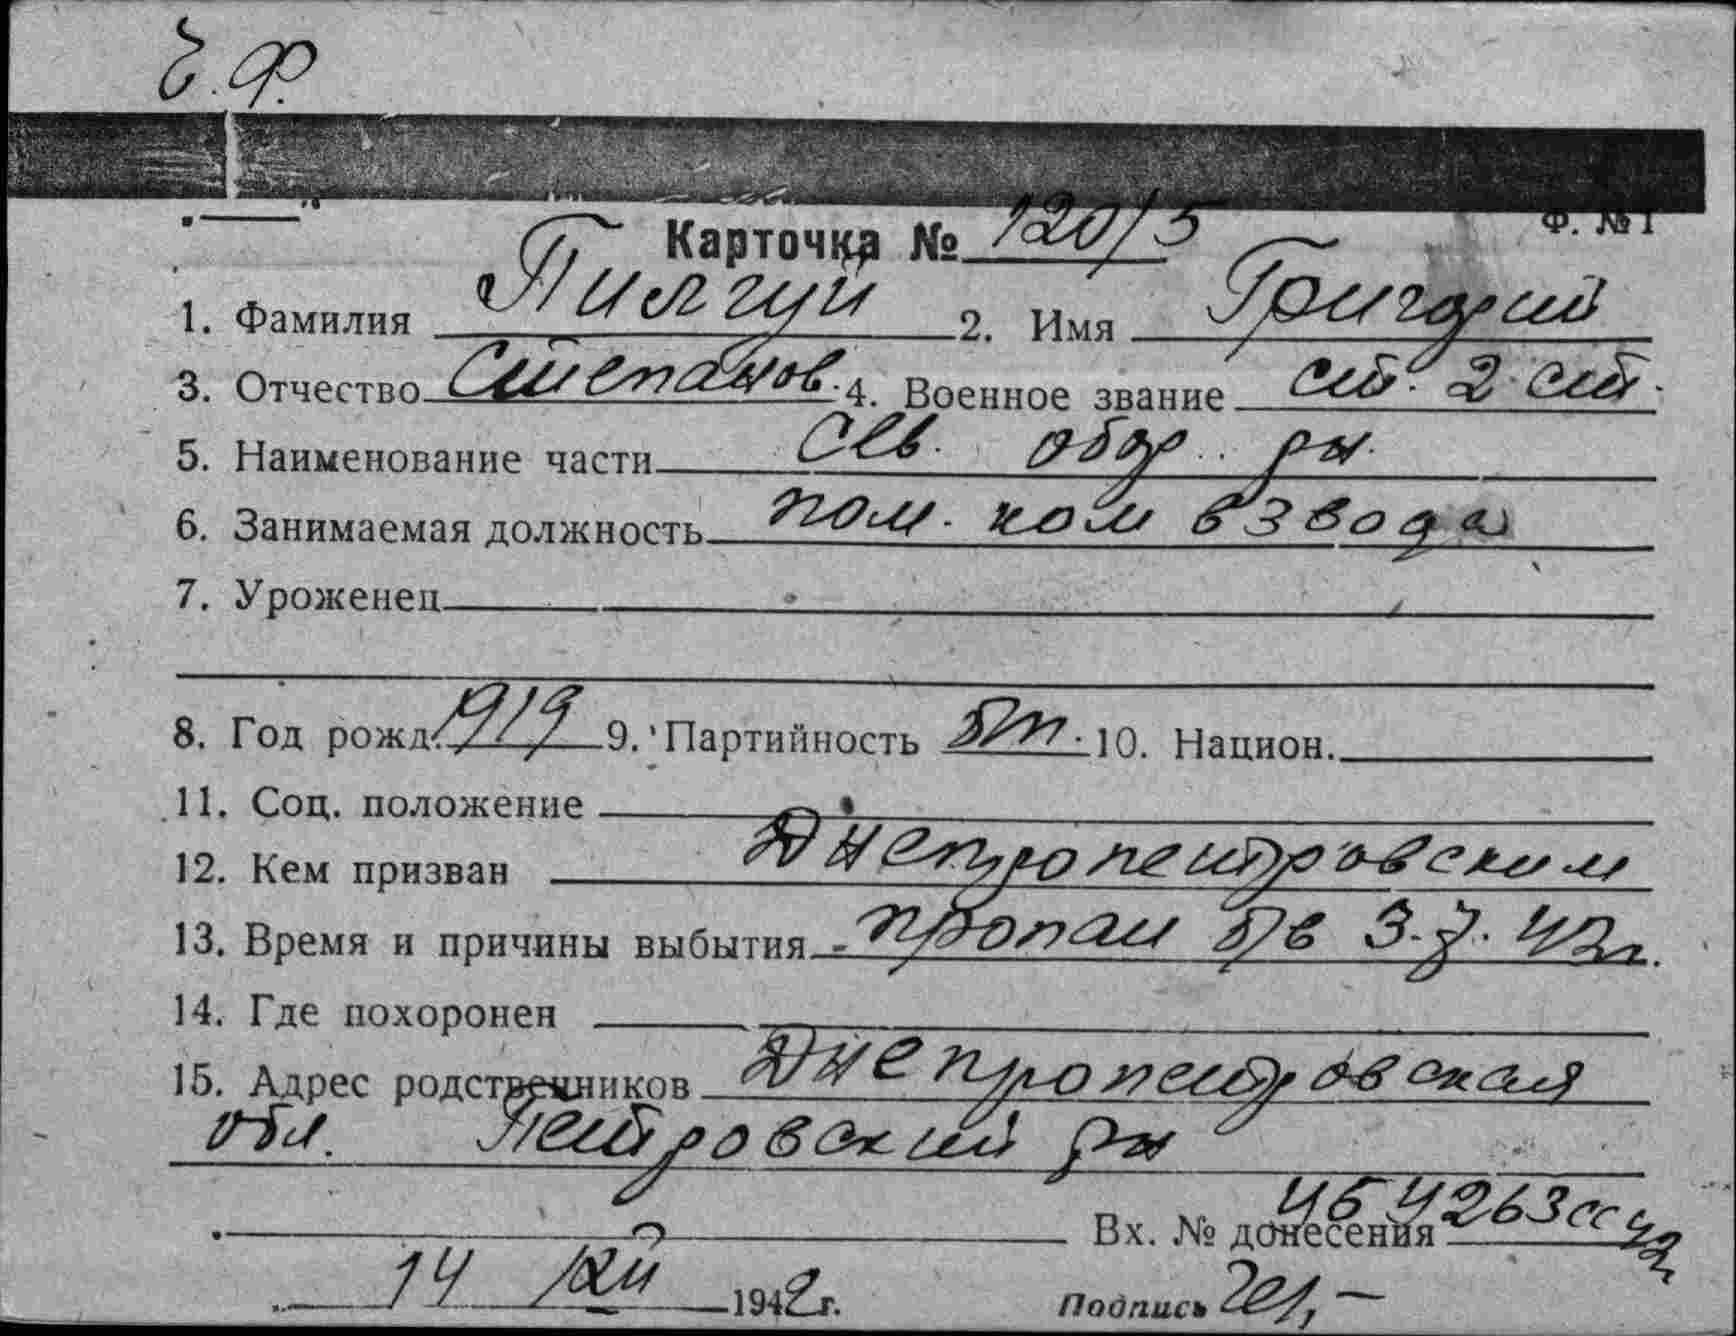 Ч.Ф.
Ф. №1
Карточка № 120/5
1. Фамилия Пилгуй 2. Имя Григорий
3. Отчество Степанов. 4. Военное звание ст. 2 ст.
5. Наименование части Сев. обор. р-н.
6. Занимаемая должность пом. ком взвода
7. Уроженец
8. Год рожд. 1919 9. Партийность б/п. 10. Национ.
11. Соц. положение
12. Кем призван Днепропетровским
13. Время и причины выбытия - пропал б/в 3.7.42г.
14. Где похоронен
15. Адрес родственников Днепропетровская
обл. Петровский р-н
Вх. № донесения 4263сс 42
14 XII 1942г. Подпись